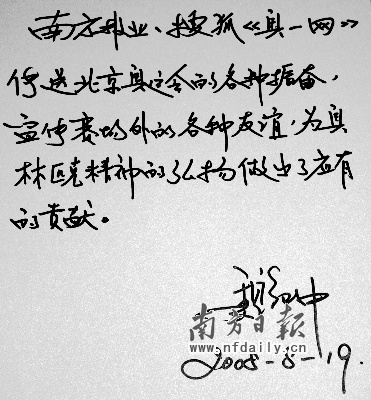 南方报业、搜狐《奥一网》
传送北京奥运会的各种振奋,
宣传赛场外的各种友谊,为奥
林匹克精神的弘扬做出了应有
的贡献。
南方日报
www.nfdaily.cn
2008-8-19.